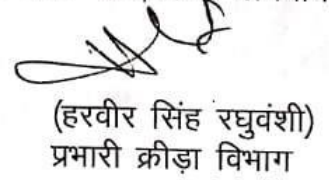 (हरवीर सिंह रघुवंशी)
प्रभारी क्रीड़ा विभाग